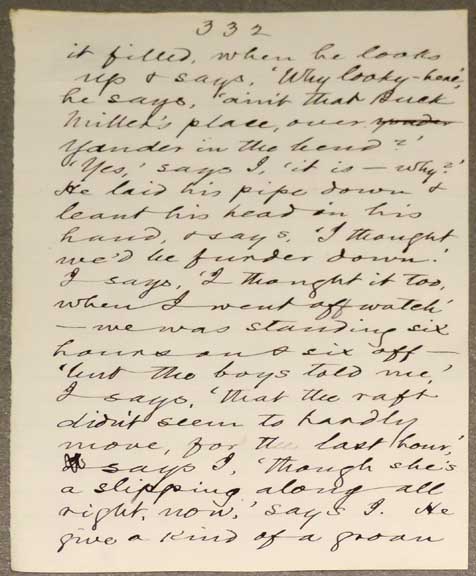 332
it filled, when he looks
up & says, 'Why looky-here,'
he says, 'ain't that Buck
Miller's place, over yonder
yander in the bend?'
'Yes,' says I, 'it is — why?'
He laid his pipe down &
leant his head on his
hand, & says, 'I thought
we'd be furder down.'
I says, 'I thought it too,
when I went off watch'
— we was standing six
hours on & six off —
'but the boys told me,'
I says, 'that the raft
didn't seem to hardly
move, for the last hour,'
says I, 'though she's
a slipping along all
right, now,' says I. He
give a kind of a groan